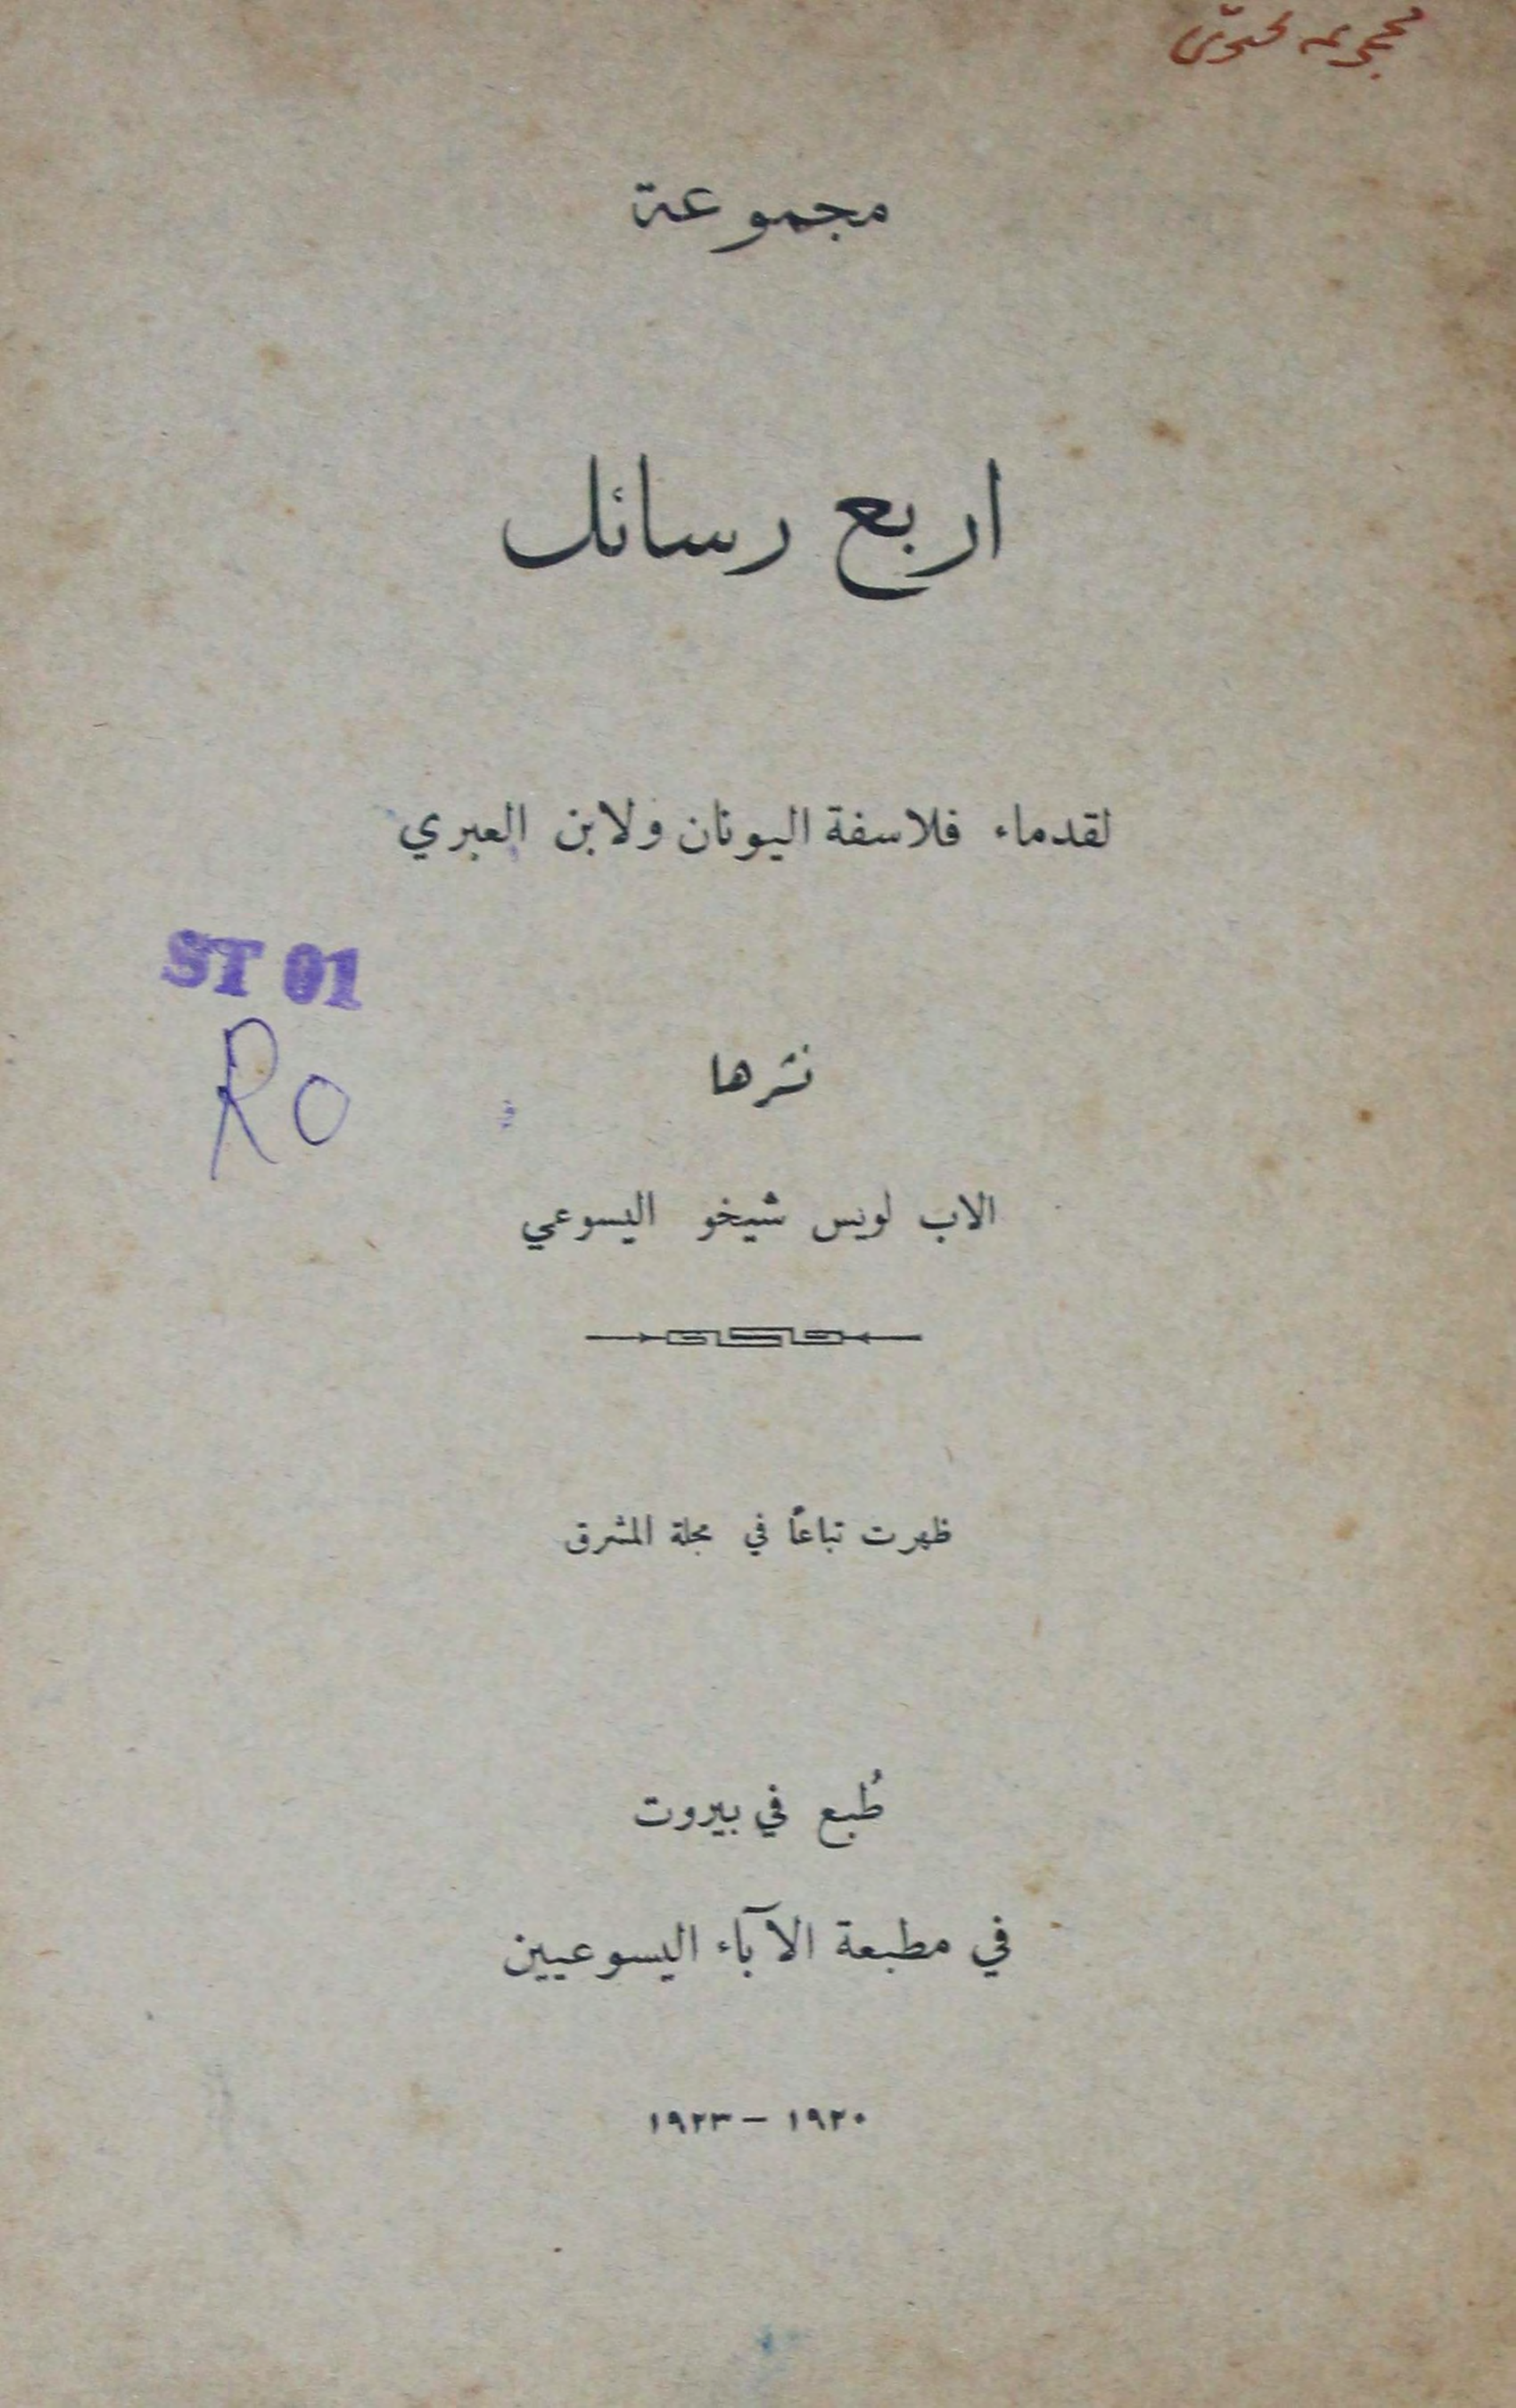 مجموعة
اربع رسائل
لقدماء فلاسفة اليونان ولابن العبري
ST 01
RO
نشرها
الاب لويس شيخو اليسوعي
ظهرت تباعًا في مجلة المشرق
طُبع في بيروت
في مطبعة الآباء اليسوعيين
١٩٢٠ – ١٩٢٣